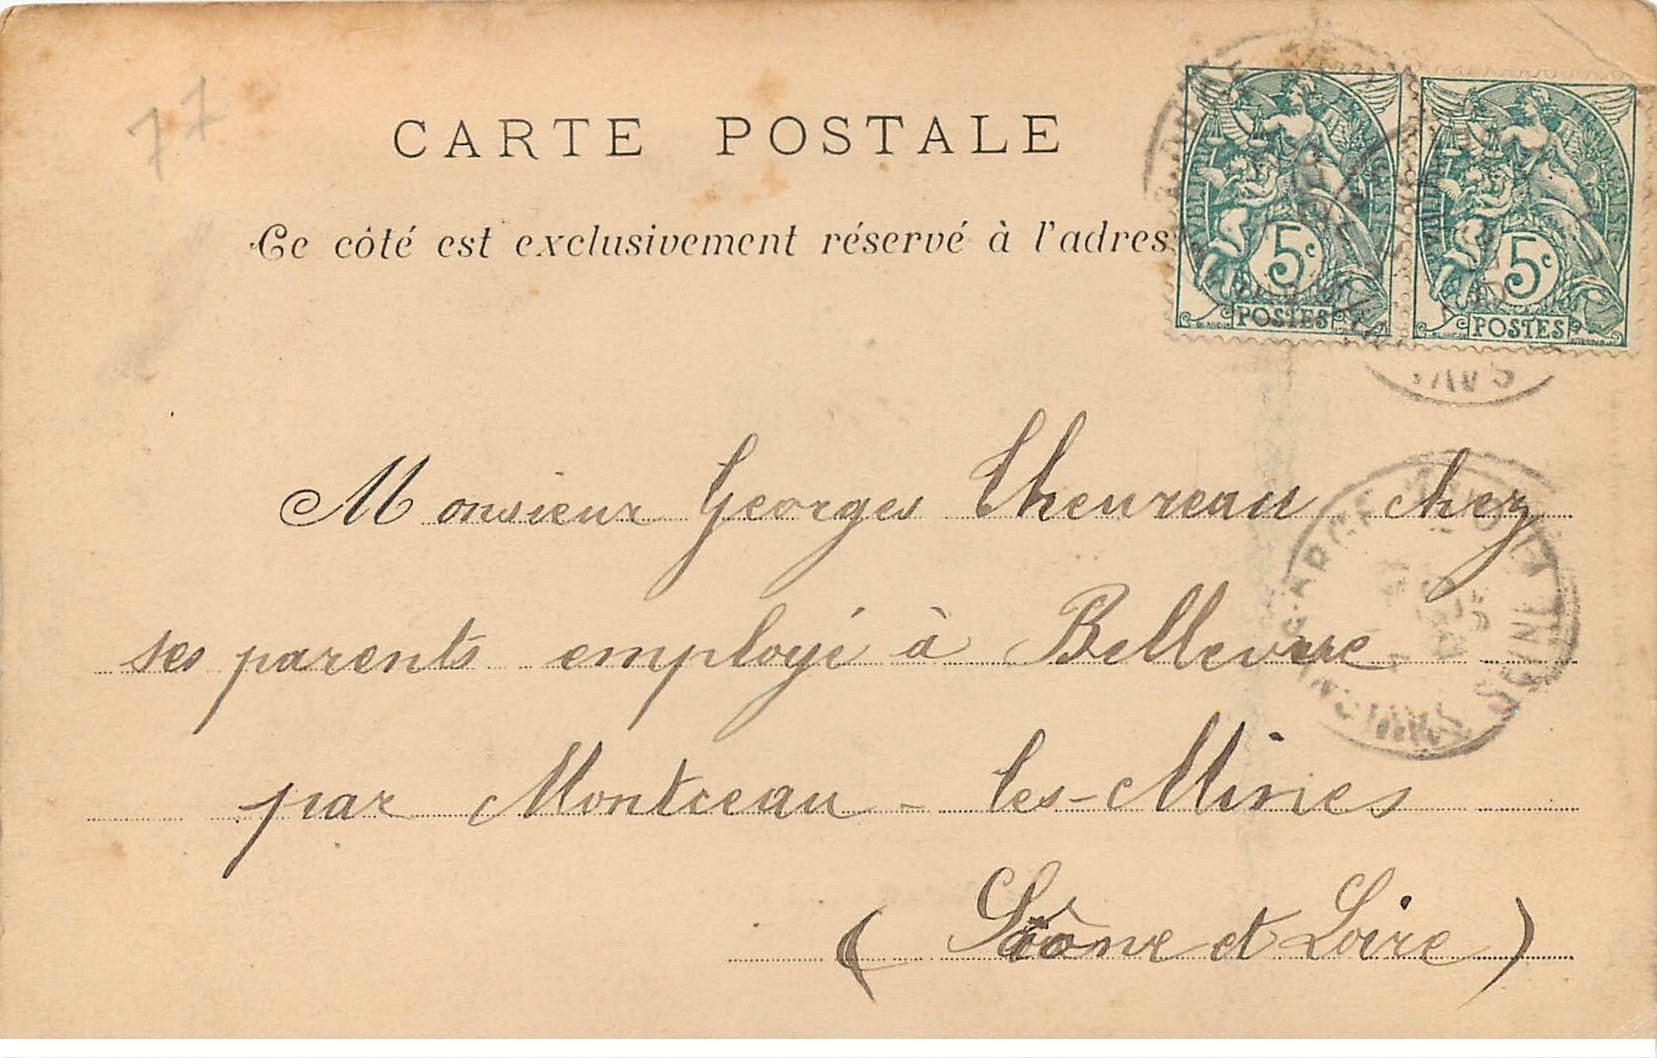 77
CARTE POSTALE
Ce côté est exclusivement réservé à l'adres
RÉPUBLIQUE FRANÇAISE
5c
POSTES
RÉPUBLIQUE FRANÇAISE
5c
POSTES
Monsieur Georges Theureau chez
ses parents employé à Bellevue
par Montceau-les-Mines
(Saône et Loire)